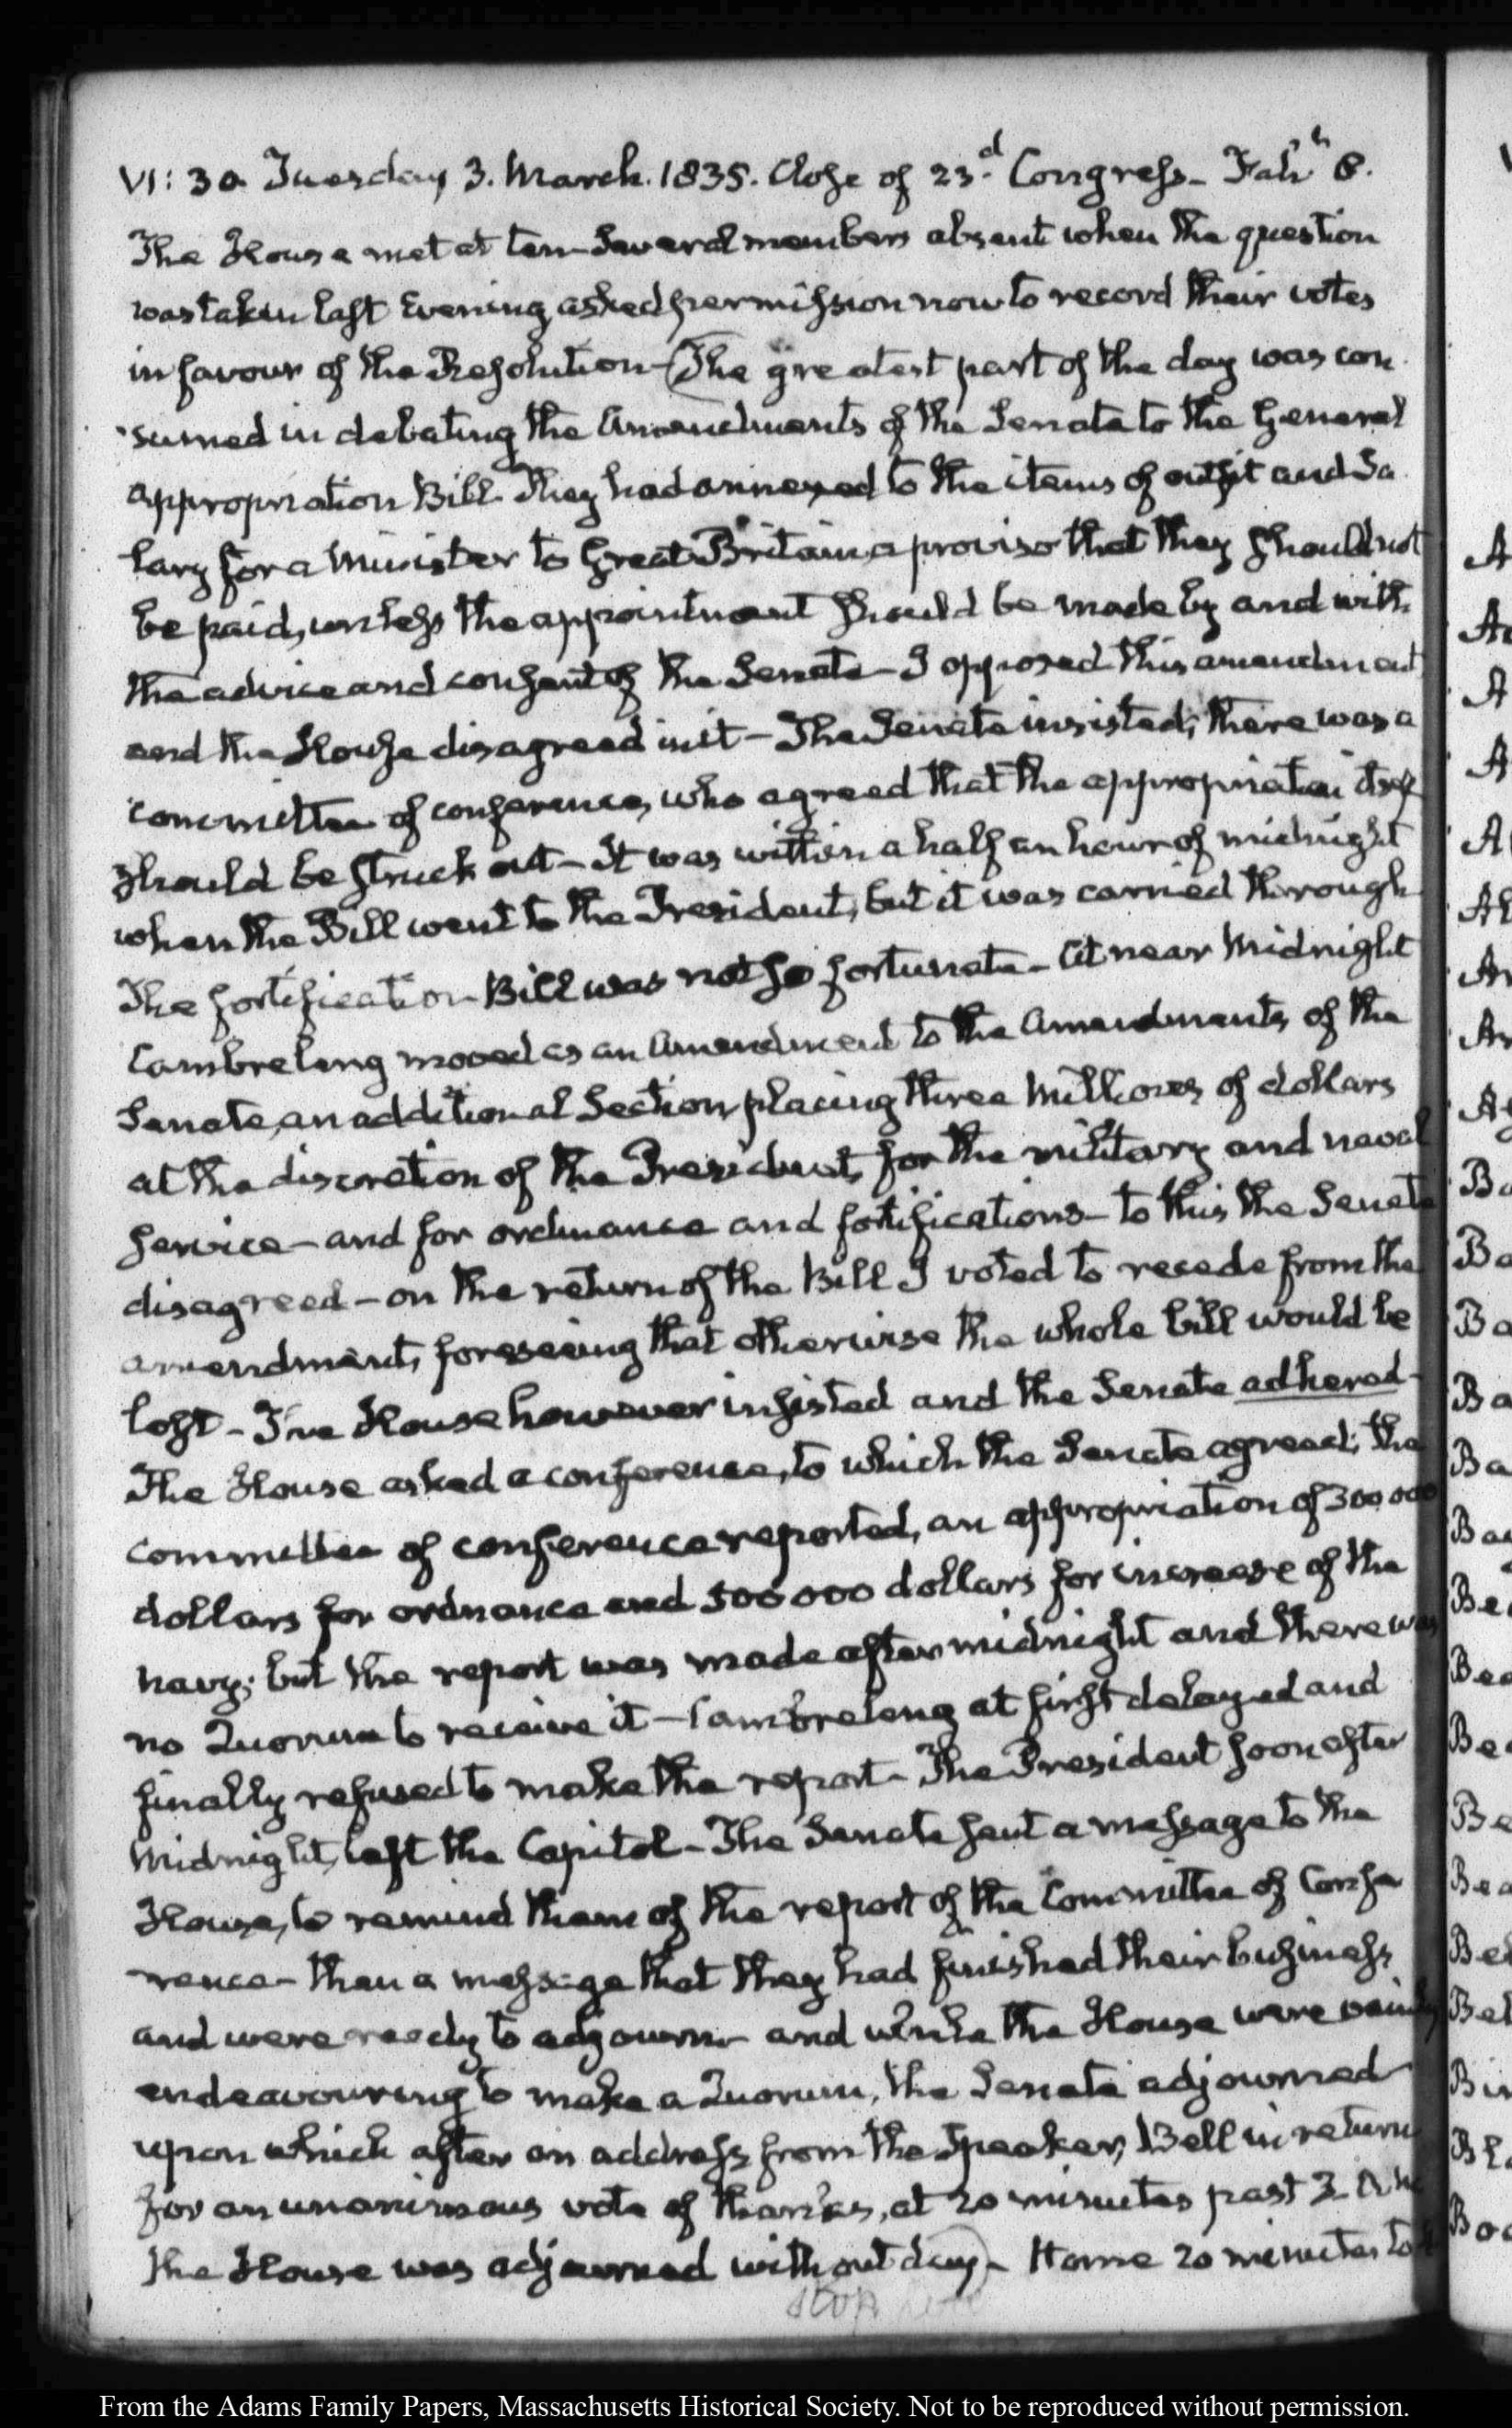 VI: 30. Tuesday 3. March. 1835. Close of 23.d Congress – Fahr.t 8.
The House met at ten – Several members absent when the question
was taken last Evening, asked permission now to record their votes
in favour of the Resolution – (The greatest part of the day was con
sumed in debating the Amendments of the Senate to the General
appropriation Bill. They had annexed to the items of outfit and Sa
lary for a Minister to Great-Britain, a proviso that they should not
be paid, unless the appointment should be made by and with
the advice and consent of the Senate – I opposed this amendment
and the House disagreed in it – The Senate insisted; there was a
committee of conference, who agreed that the appropriation itself
should be struck out – It was within a half an hour of midnight
when the Bill went to the President, but it was carried through
The fortification Bill was not so fortunate – At near Midnight
Cambreleng moved as an Amendment to the Amendments of the
Senate, an additional Section, placing three Millions of dollars
at the discretion of the President, for the military and naval
service – and for ordnance and fortifications – to this the Senate
disagreed – on the return of the Bill I voted to recede from the
amendment, foreseeing that otherwise the whole bill would be
lost – The House however insisted and the Senate adhered –
The House asked a conference, to which the Senate agreed; the
committee of conference reported, an appropriation of 300 000
dollars for ordnance and 500 000 dollars for increase of the
navy; but the report was made after midnight and there was
no Quorum to receive it – Cambreleng at first delayed and
finally refused to make the report – The President soon after
Midnight, left the Capitol – The Senate sent a message to the
House, to remind them of the report of the Committee of Confe
rence – then a message that they had finished their business
and were ready to adjourn – and while the House were vainly
endeavouring to make a Quorum, the Senate adjourned
upon which after an address from the Speaker, Bell in return
for an unanimous vote of thanks, at 20 minutes past 3. A.M.
the House was adjourned without day) – Home 20 minutes to
stop here
A
A
A
A
Ba
Ba
Ba
Ba
Be
Be
Be
Be
Be
Bo
From the Adams Family Papers, Massachusetts Historical Society. Not to be reproduced without permission.